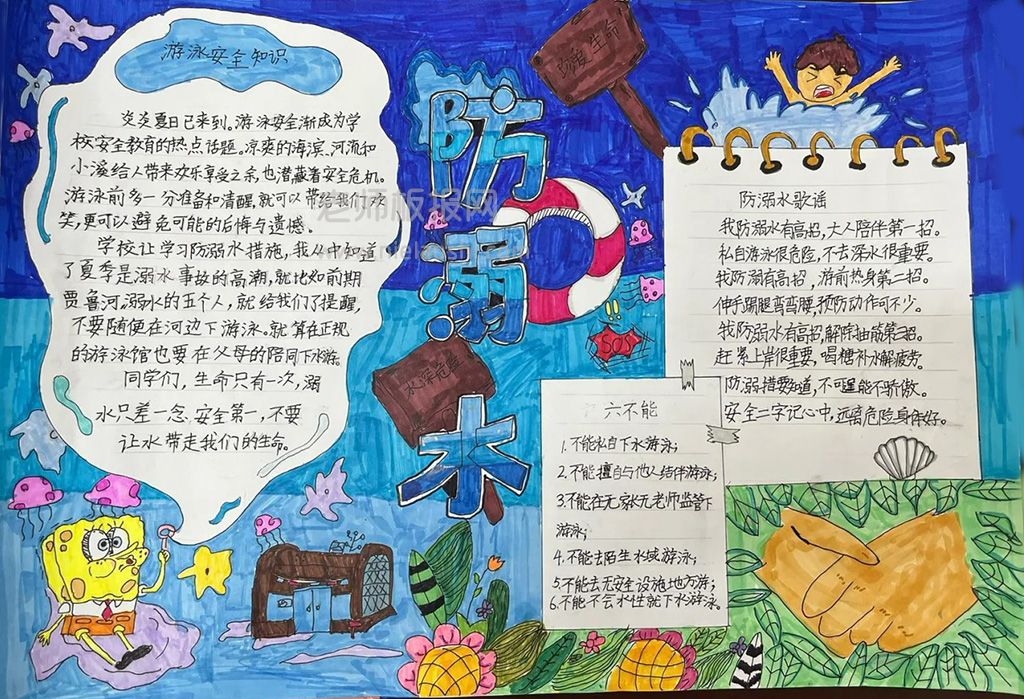 游泳安全知识
炎炎夏日已来到。游泳安全渐成为学
校安全教育的热点话题。凉爽的海滨、河流和
小溪给人带来欢乐享受之余,也潜藏着安全危机。
游泳前多一分准备和清醒,就可以带给我们欢
笑,更可以避免可能的后悔与遗憾。
学校让学习防溺水措施,我从中知道
了夏季是溺水事故的高潮,就比如前期
贾鲁河溺水的五个人,就给我们了提醒,
不要随便在河边下游泳。就算在正规
的游泳馆也要在父母的陪同下水游。
同学们,生命只有一次,溺
水只差一念。安全第一,不要
让水带走我们的生命。
防溺水
生命
水深危险
SOS
老师板报网
防溺水歌谣
我防溺水有高招,大人陪伴第一招。
私自游泳很危险,不去深水很重要。
我防溺有高招,游前热身第二招。
伸手踢腿弯弯腰,预防动作可不少。
我防溺水有高招,解除抽筋第三招。
赶紧上岸很重要,喝糖补水解疲劳。
防溺措要知道,不可逞能不骄傲。
安全二字记心中,远离危险身体好。
六不能
1.不能私自下水游泳;
2.不能擅自与他人结伴游泳;
3.不能在无家长无老师监管下
游泳;
4.不能去陌生水域游泳;
5.不能去无安全设施地方游;
6.不能不会水性就下水游泳。